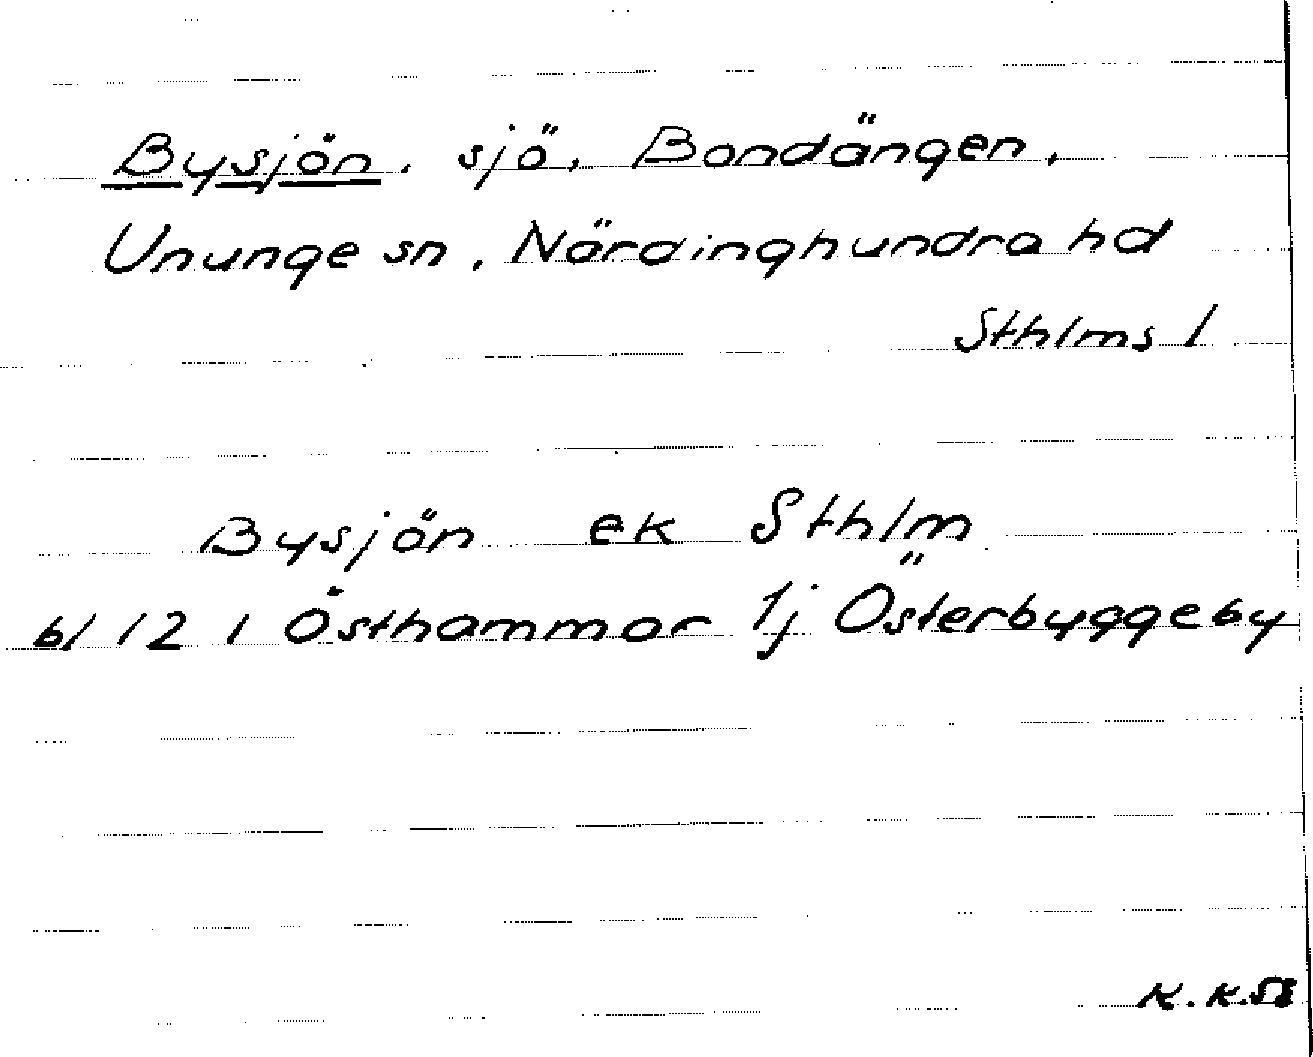 Bysjön, sjö, Bondängen,
Ununge sn, Närdinghundra hd
Sthlms l
Bysjön ek Sthlm
bl 12 i Östhammar 1j Österbyggeby
K.K.58